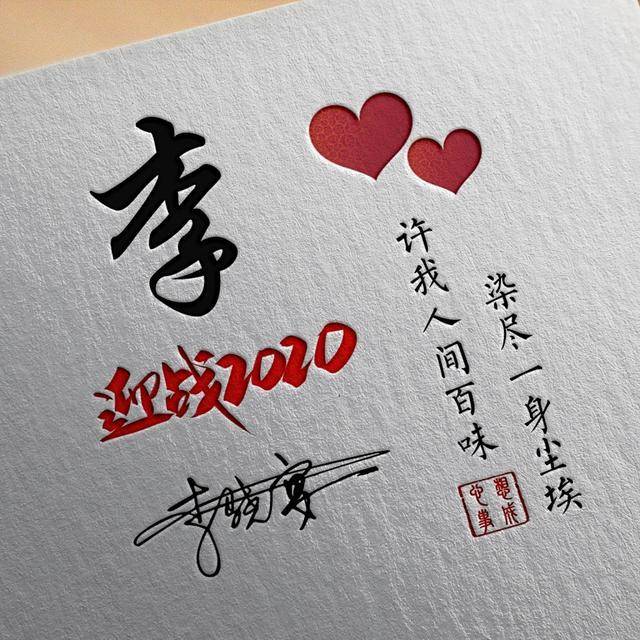 李
迎战2020
李晓
许我人间百味
染尽一身尘埃
心想
事成